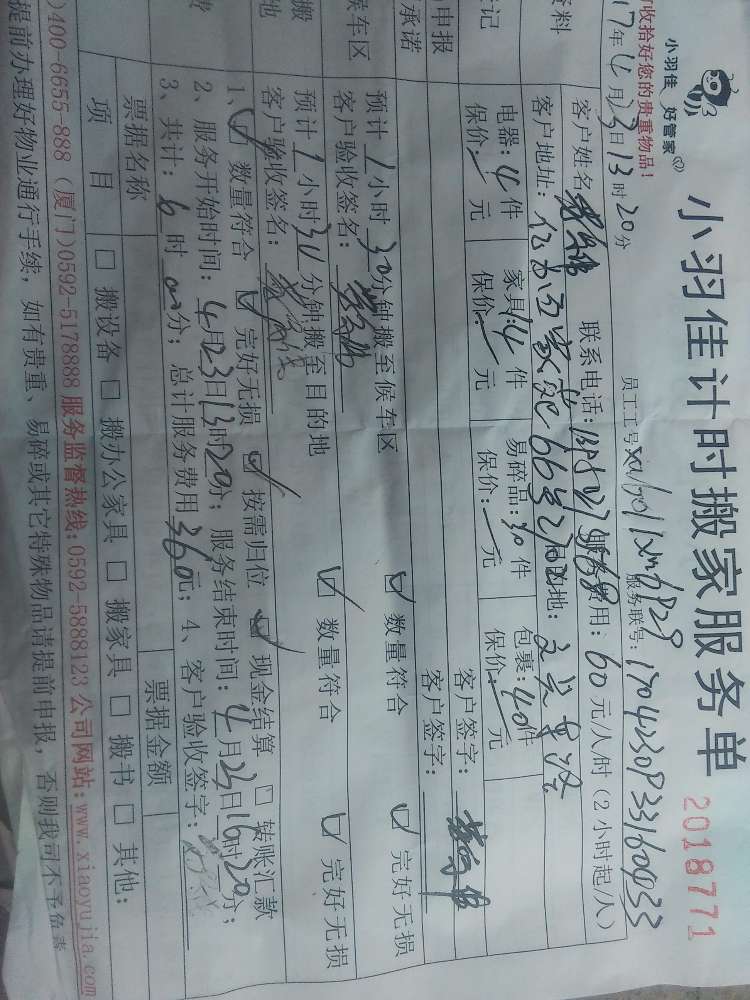 小羽佳 好管家
小羽佳计时搬家服务单
2018771
收拾好您的贵重物品！
17年4月23日13时20分
员工工号
服务联号：
资料
客户姓名
联系电话：
服务费用：60元/人/时（2小时起/人）
客户地址：
目的地：
登记
电器：4件
家具：14件
易碎品：30件
包裹：40件
保价：元
保价：元
保价：元
保价：元
客户签字：
申报
承诺
客户签字：
候车区
预计1小时30分钟搬至候车区
数量符合
完好无损
客户验收签名：
搬
地
预计1小时30分钟搬至目的地
数量符合
完好无损
客户验收签名：
费
1、数量符合 完好无损 按需归位 现金结算 转账汇款
2、服务开始时间：4月23日13时20分；服务结束时间：4月23日16时30分；
3、共计：6时00分；总计服务费用360元；4、客户验收签字：
票据名称
票据金额
项目
搬设备 搬办公家具 搬家具 搬书 其他：
)400-6655-888 (厦门)0592-5178888 服务监督热线：0592-5888123 公司网站：www.xiaoyujia.com
提前办理好物业通行手续，如有贵重、易碎或其它特殊物品请提前申报，否则我司不予